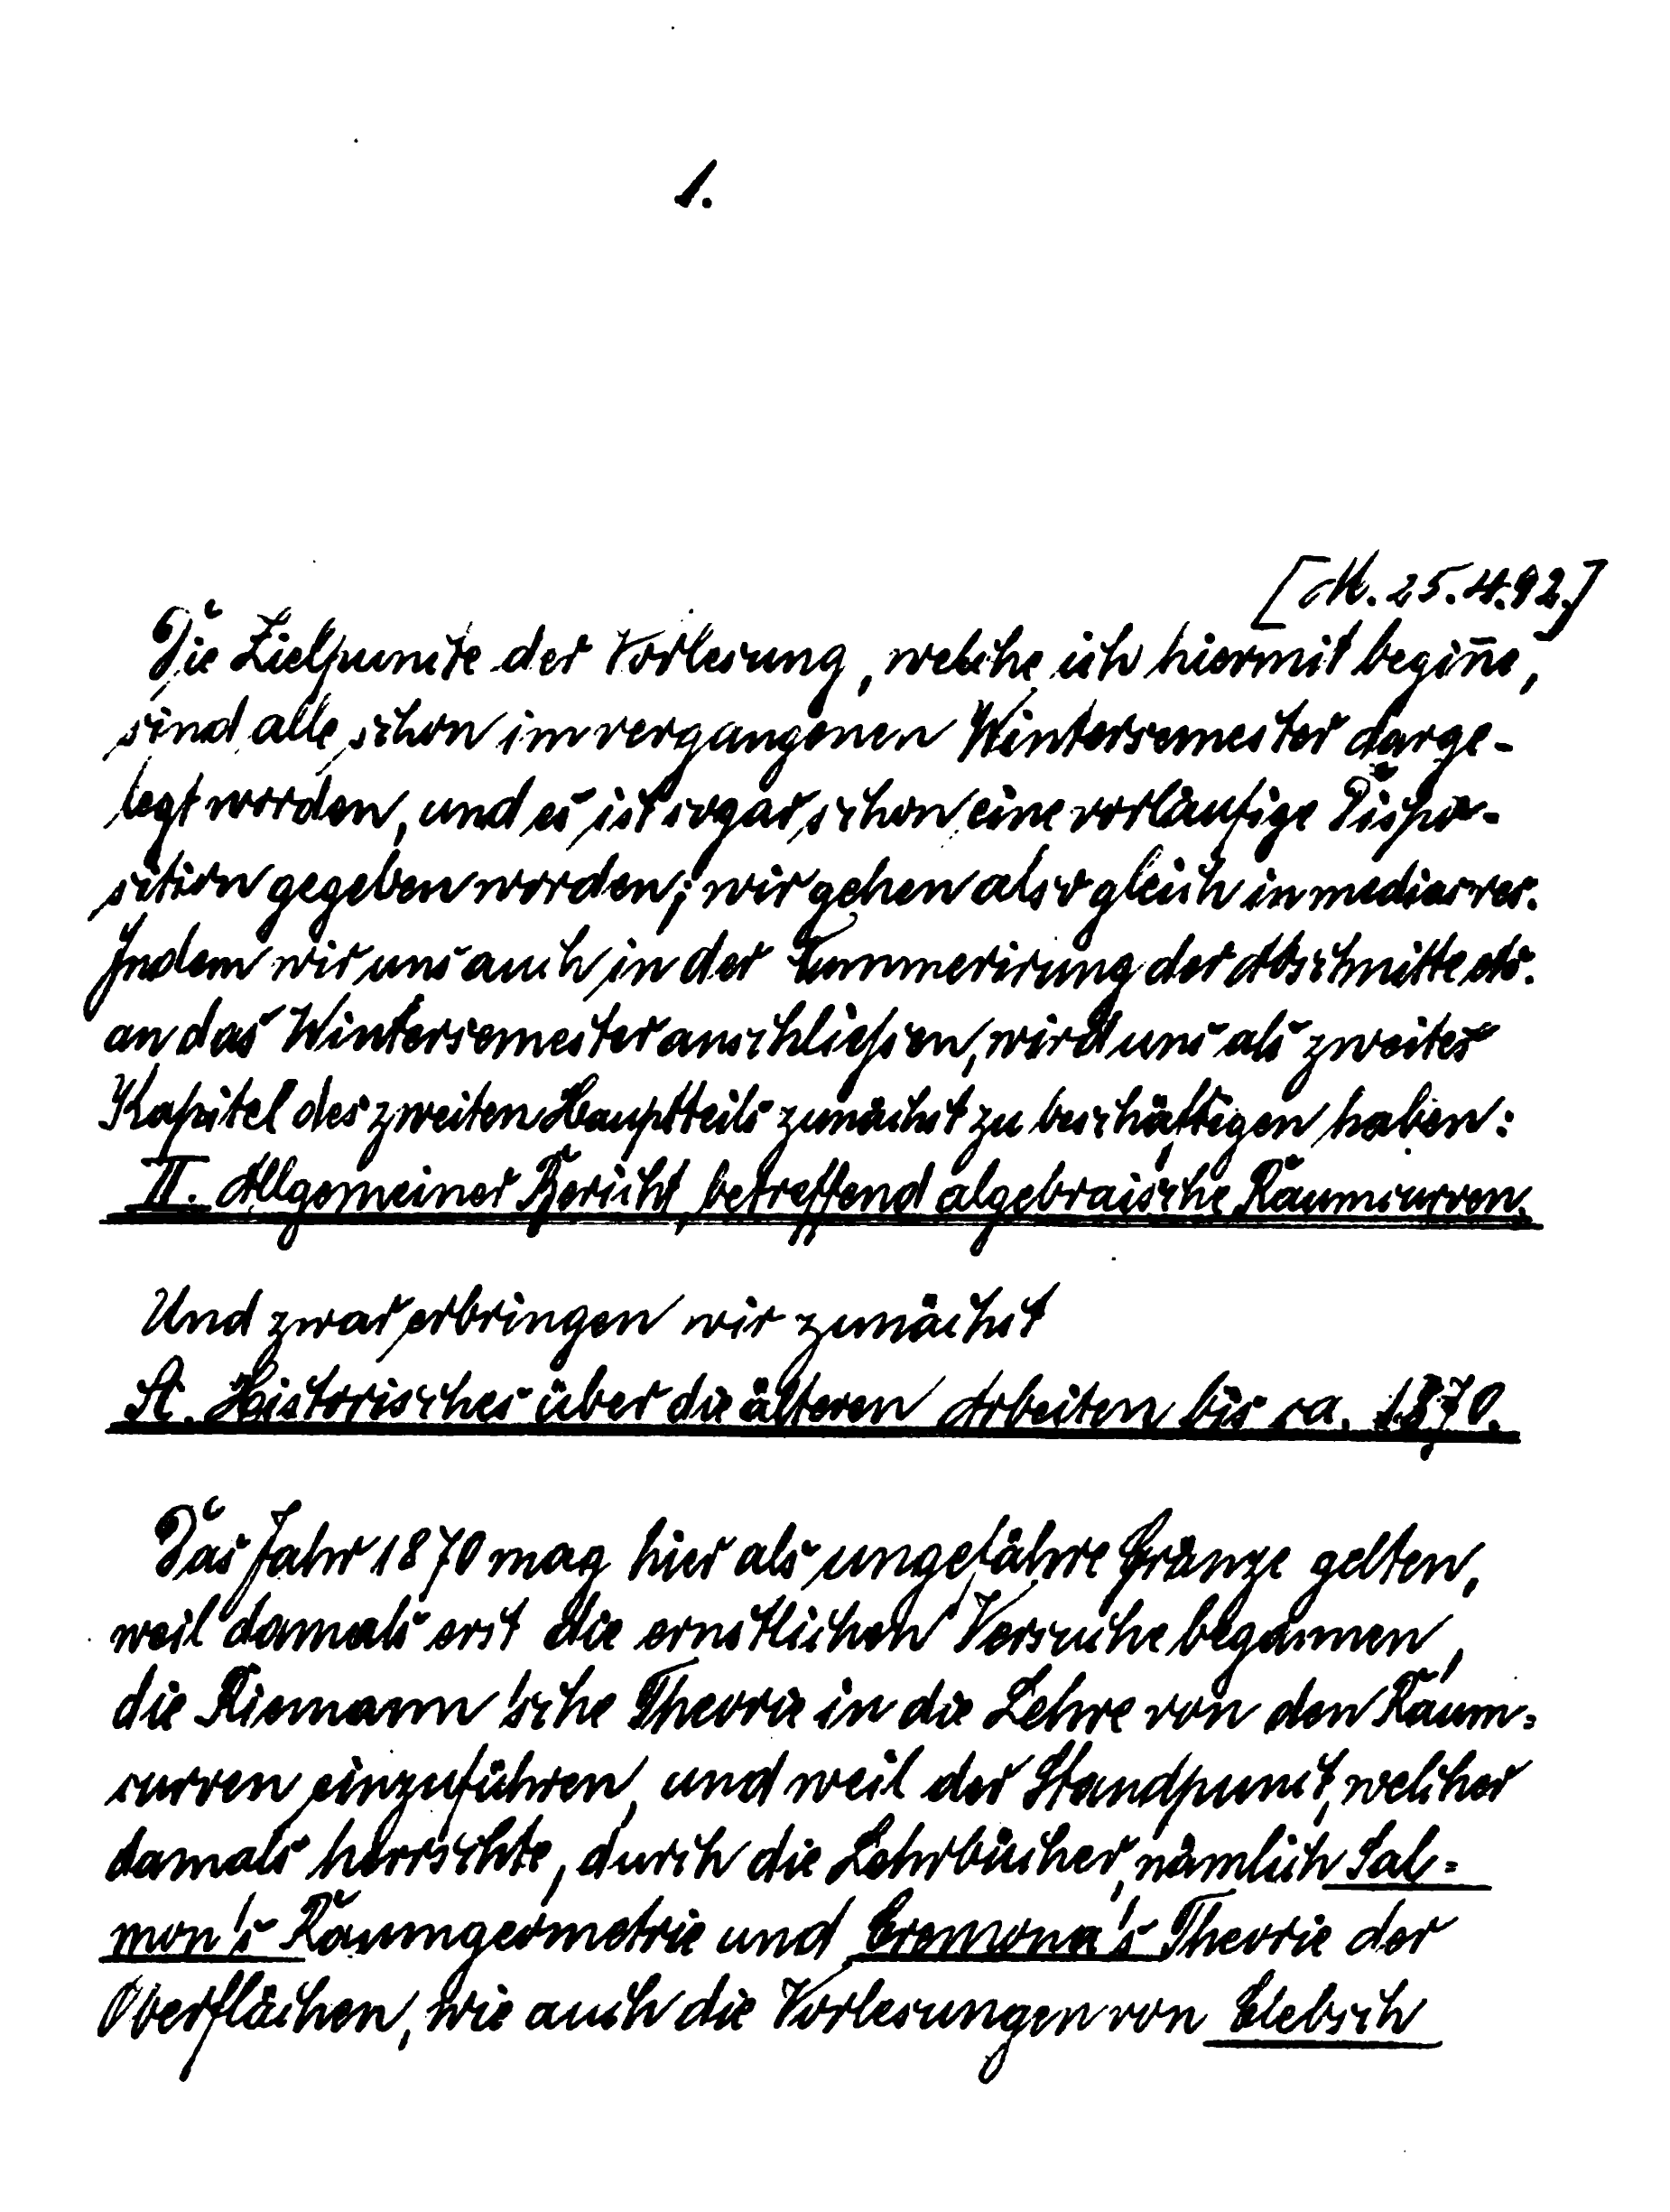 1.
[M. 25.4.92.]
Die Zielpuncte der Vorlesung, welche ich hiermit begin̅e,
sind alle schon im vergangenen Wintersemester darge-
legt worden, und es ist sogar schon eine vorläufige Dispo-
sition gegeben worden; wir gehen also gleich in medias res.
Indem wir uns auch in der Nummerirung der Abschnitte etc.
an das Wintersemester anschließen, wird uns als zweites
Kapitel des zweiten Hauptteils zunächst zu beschäftigen haben:
II. Allgemeiner Bericht, betreffend algebraische Raumcurven.
Und zwar erbringen wir zunächst
A. Historisches über die älteren Arbeiten bis ca. 1870.
Das Jahr 1870 mag hier als ungefähre Gränze gelten,
weil damals erst die ernstlichen Versuche begannen,
die Riemann'sche Theorie in die Lehre von den Raum=
curven einzuführen, und weil der Standpunct, welcher
damals herrschte, durch die Lehrbücher, nämlich Sal=
mon's Raumgeometrie und Cremona's Theorie der
Oberflächen, wie auch die Vorlesungen von Clebsch